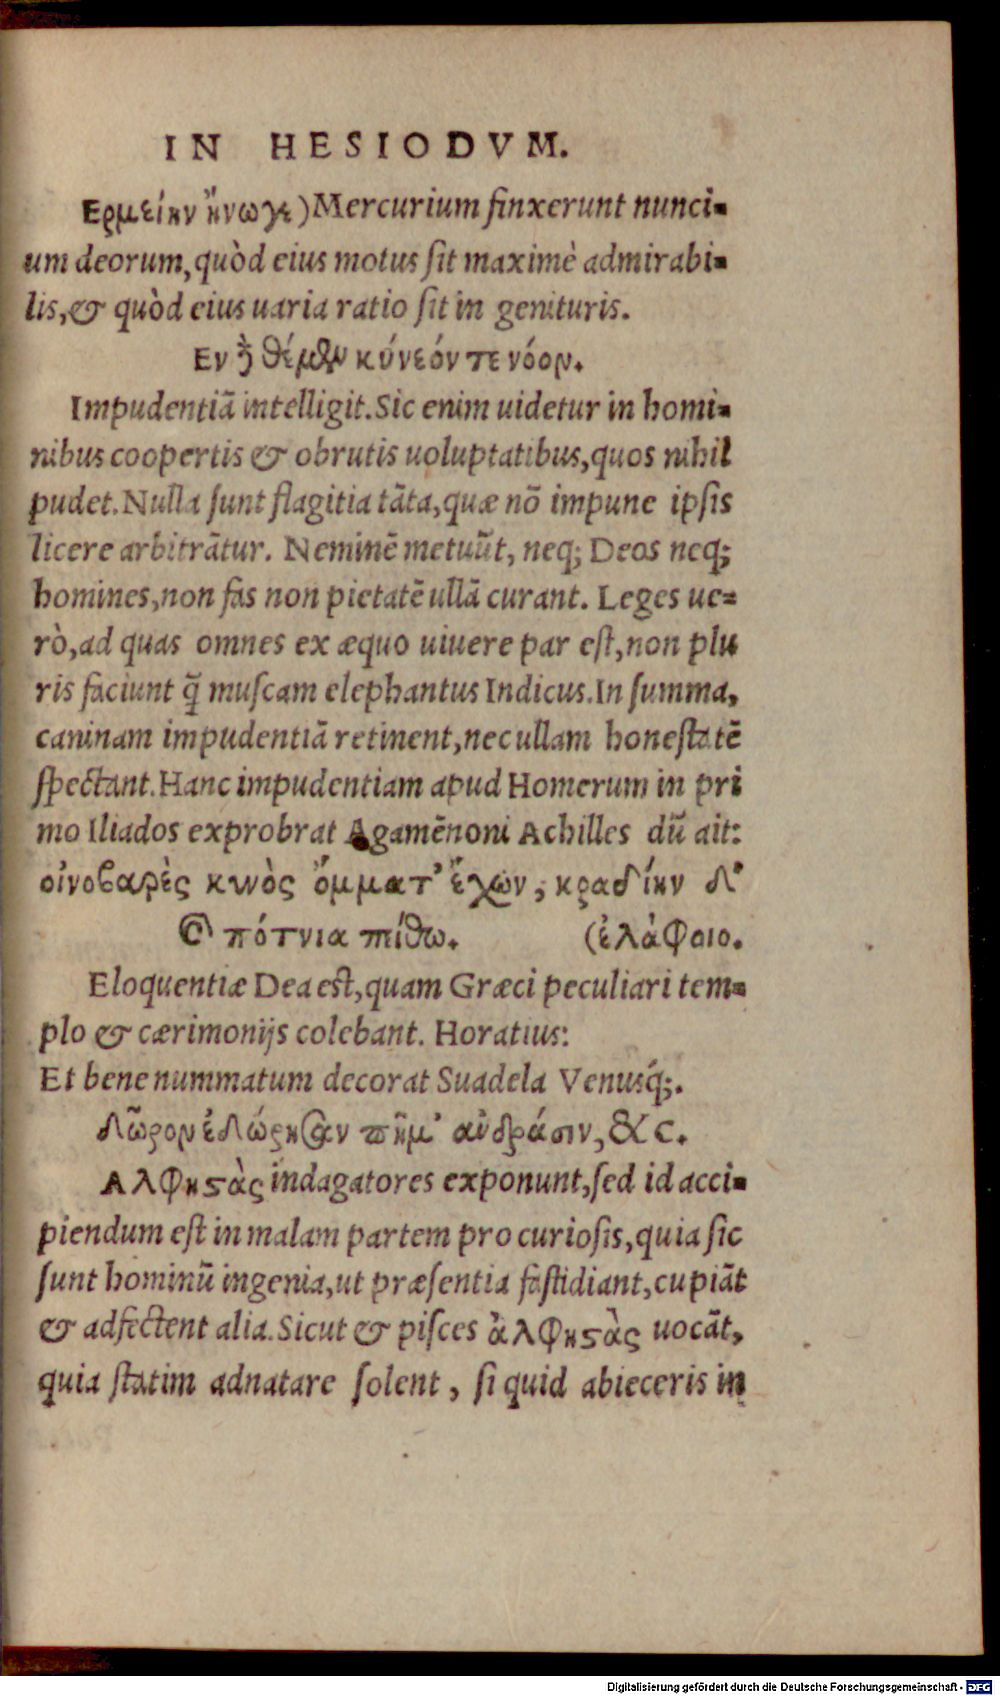 IN HESIODVM.
Ερμείην ἤνωγε) Mercurium finxerunt nunci-
um deorum, quòd eius motus sit maximè admirabi-
lis, & quòd eius uaria ratio sit in genituris.
Εν δὲ θέμεν κύνεόν τε νόον.
Impudentiã intelligit. Sic enim uidetur in homi-
nibus coopertis & obrutis uoluptatibus, quos nihil
pudet. Nulla sunt flagitia tãta, quæ nõ impune ipsis
licere arbitrãtur. Neminẽ metuũt, neq; Deos neq;
homines, non fas non pietatẽ ullã curant. Leges ue-
rò, ad quas omnes ex æquo uiuere par est, non plu
ris faciunt q̃ muscam elephantus Indicus. In summa,
caninam impudentiã retinent, nec ullam honestatẽ
spectant. Hanc impudentiam apud Homerum in pri
mo Iliados exprobrat Agamẽnoni Achilles dũ ait:
οἰνοβαρὲς κυνὸς ὄμματ' ἔχων, κραδίην δ'
Καὶ πότνια πίθω. (ἐλάφοιο.
Eloquentiæ Dea est, quam Græci peculiari tem-
plo & cærimonijs colebant. Horatius:
Et bene nummatum decorat Suadela Venusq́;.
δῶρον ἐδώρησαν πῆμ' ἀνδράσιν, &c.
Αλφηστὰς indagatores exponunt, sed id acci-
piendum est in malam partem pro curiosis, quia sic
sunt hominũ ingenia, ut præsentia fastidiant, cupiãt
& adfectent alia. Sicut & pisces ἀλφηστὰς uocãt,
quia statim adnatare solent, si quid abieceris in
Digitalisierung gefördert durch die Deutsche Forschungsgemeinschaft - DFG